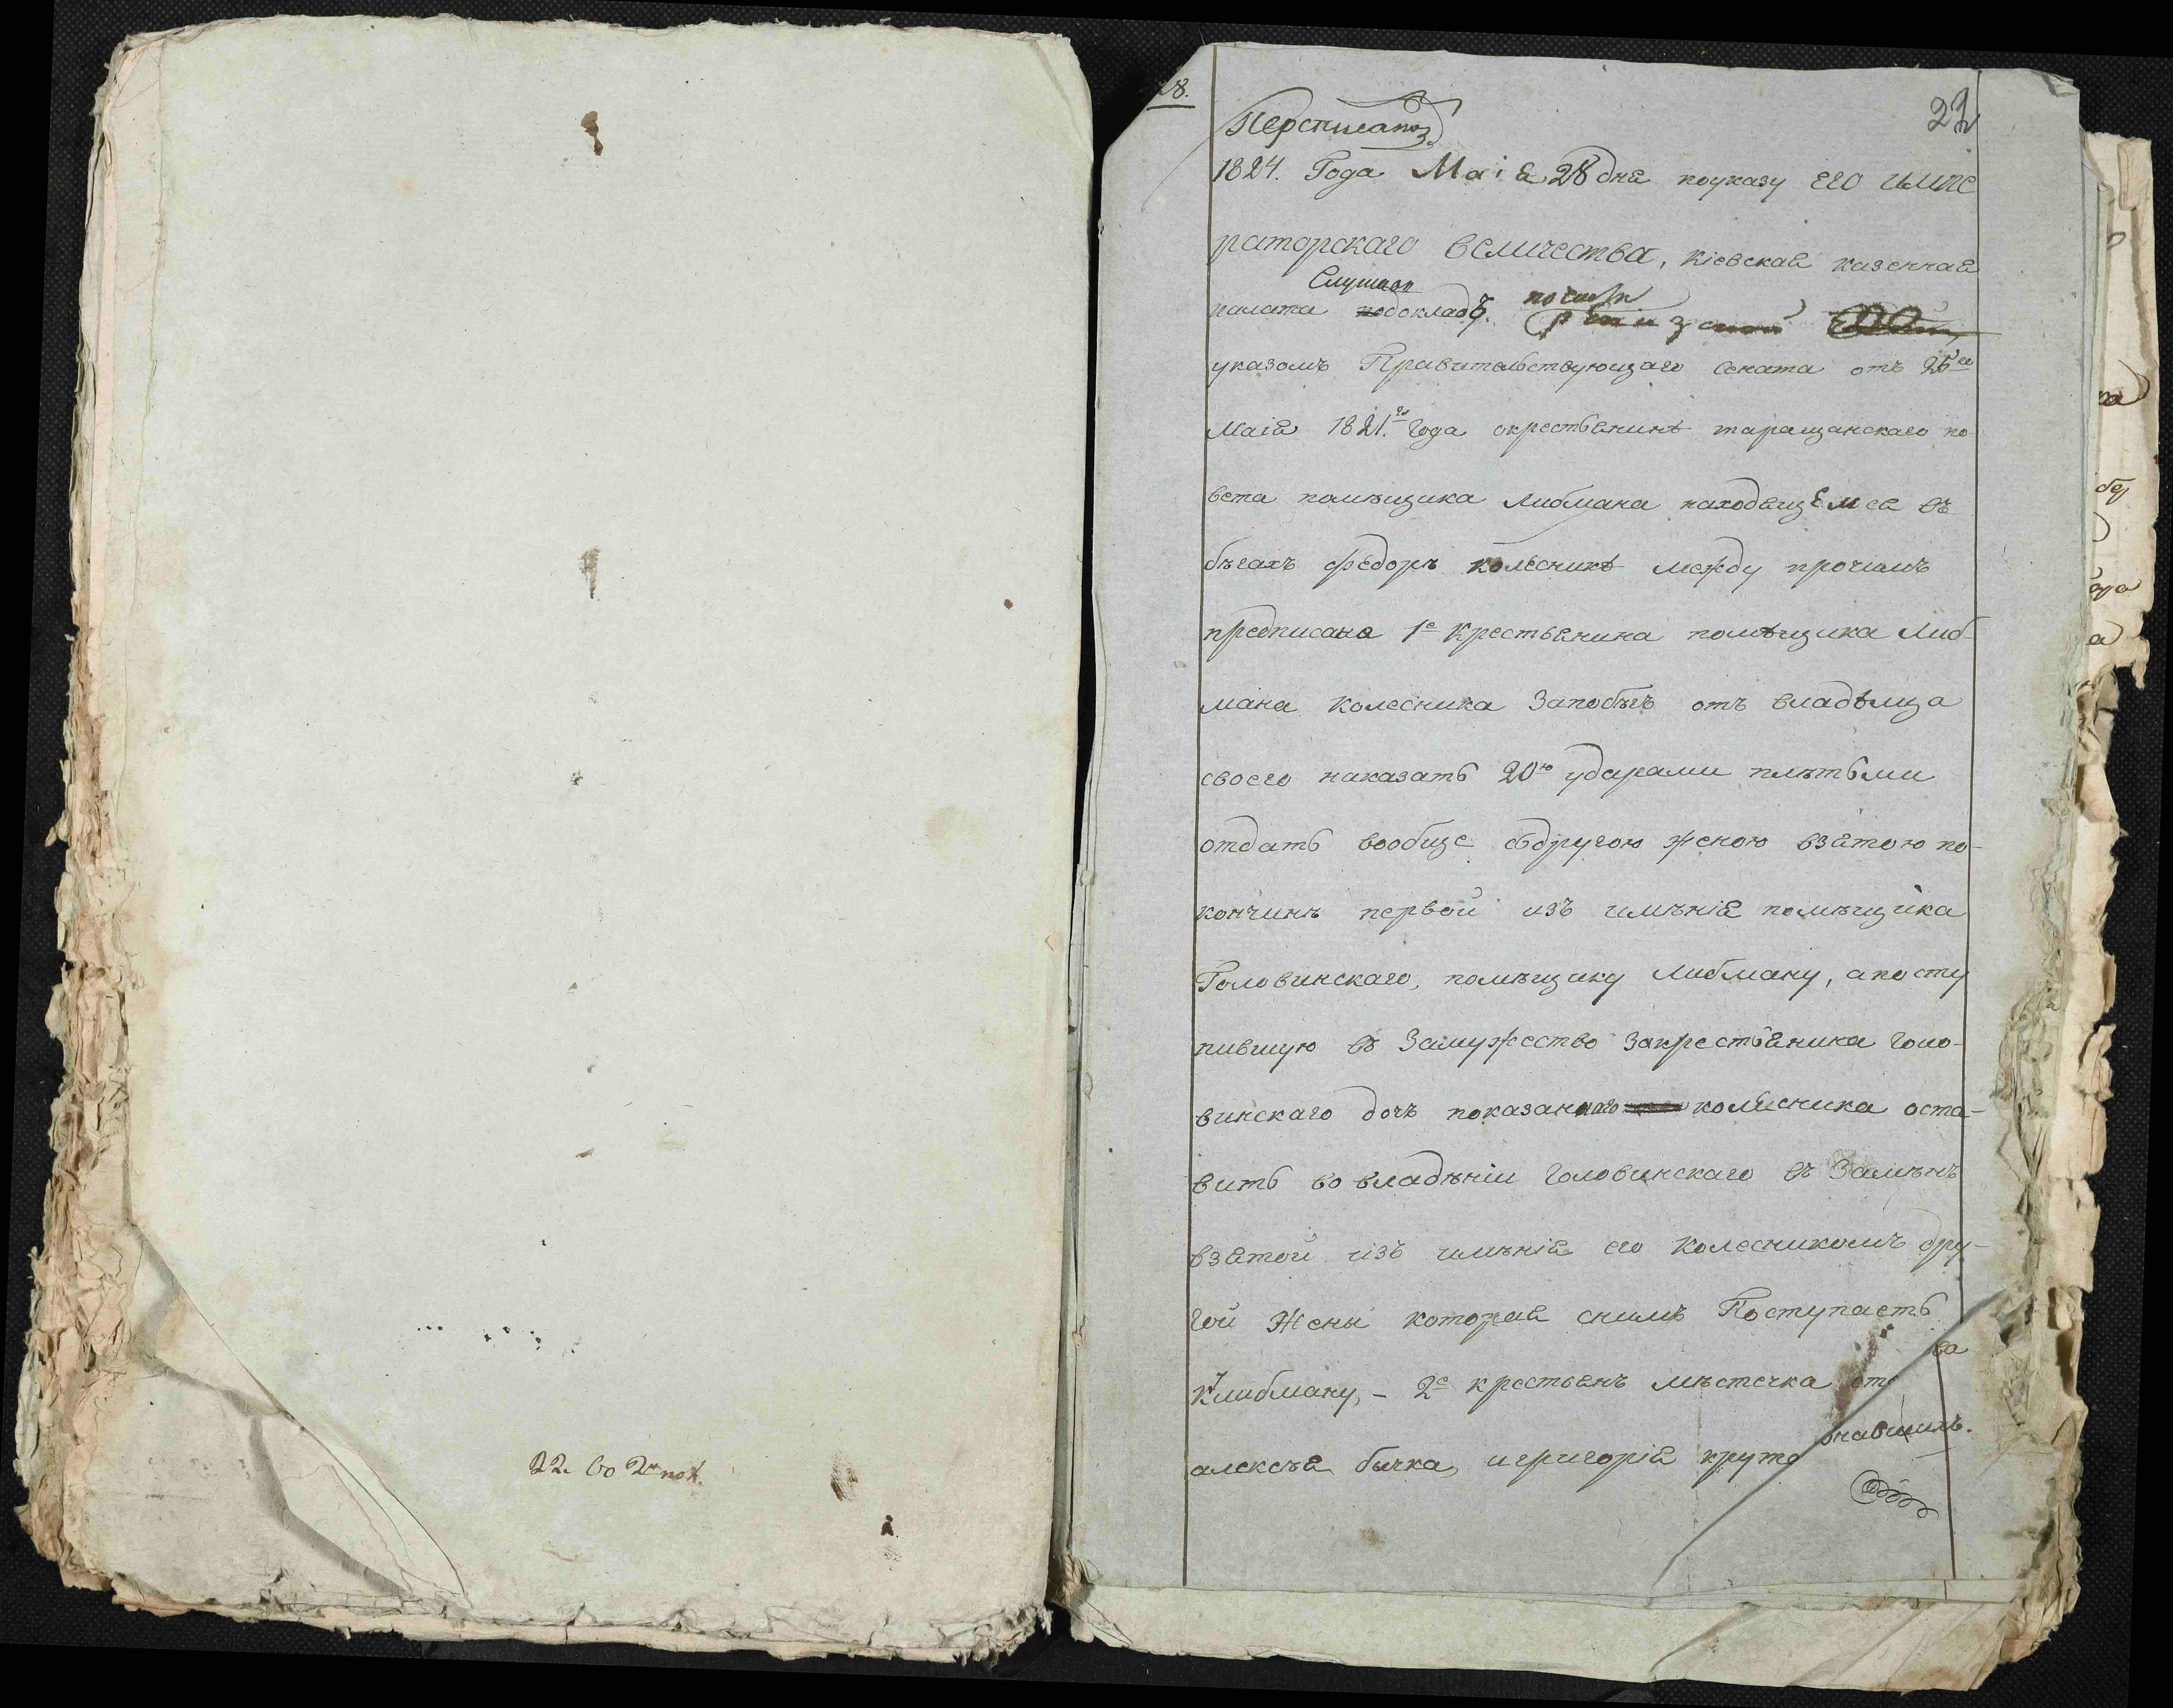 22. во 2й пол.
28.
23
Переписано
1824. Года Маія 28 дня поуказу его импе
раторскаго величества, кіевская казенная
Слушан
палата докладъ.
указомъ Правительствующаго Сената отъ 25го
Маія 1821.го года окрестьянинѣ таращанскаго по-
вета помѣщика Либмана находящемся въ
бѣгахъ федорѣ колесникѣ между прочимъ
предписано 1е крестьянина помѣщика Либ-
мана колесника Запобѣгъ отъ владѣльца
своего наказать 20ю ударами плѣтьми
отдать вообще сдругою женою взятою по-
кончинѣ первой изъ имѣнія помѣщика
Головинскаго, помѣщику Либману, а посту
пившую въ Замужество Закрестьянина голо-
винскаго дочь показаннаго колесника оста-
вить во владѣніи головинскаго въ Замѣнъ
взятой изъ имѣнія его Колесникомъ дру-
гой Жены которая снимъ Поступаетъ
къ либману, – 2е крестьянъ мѣстечка
алексѣя бычка, игригорія